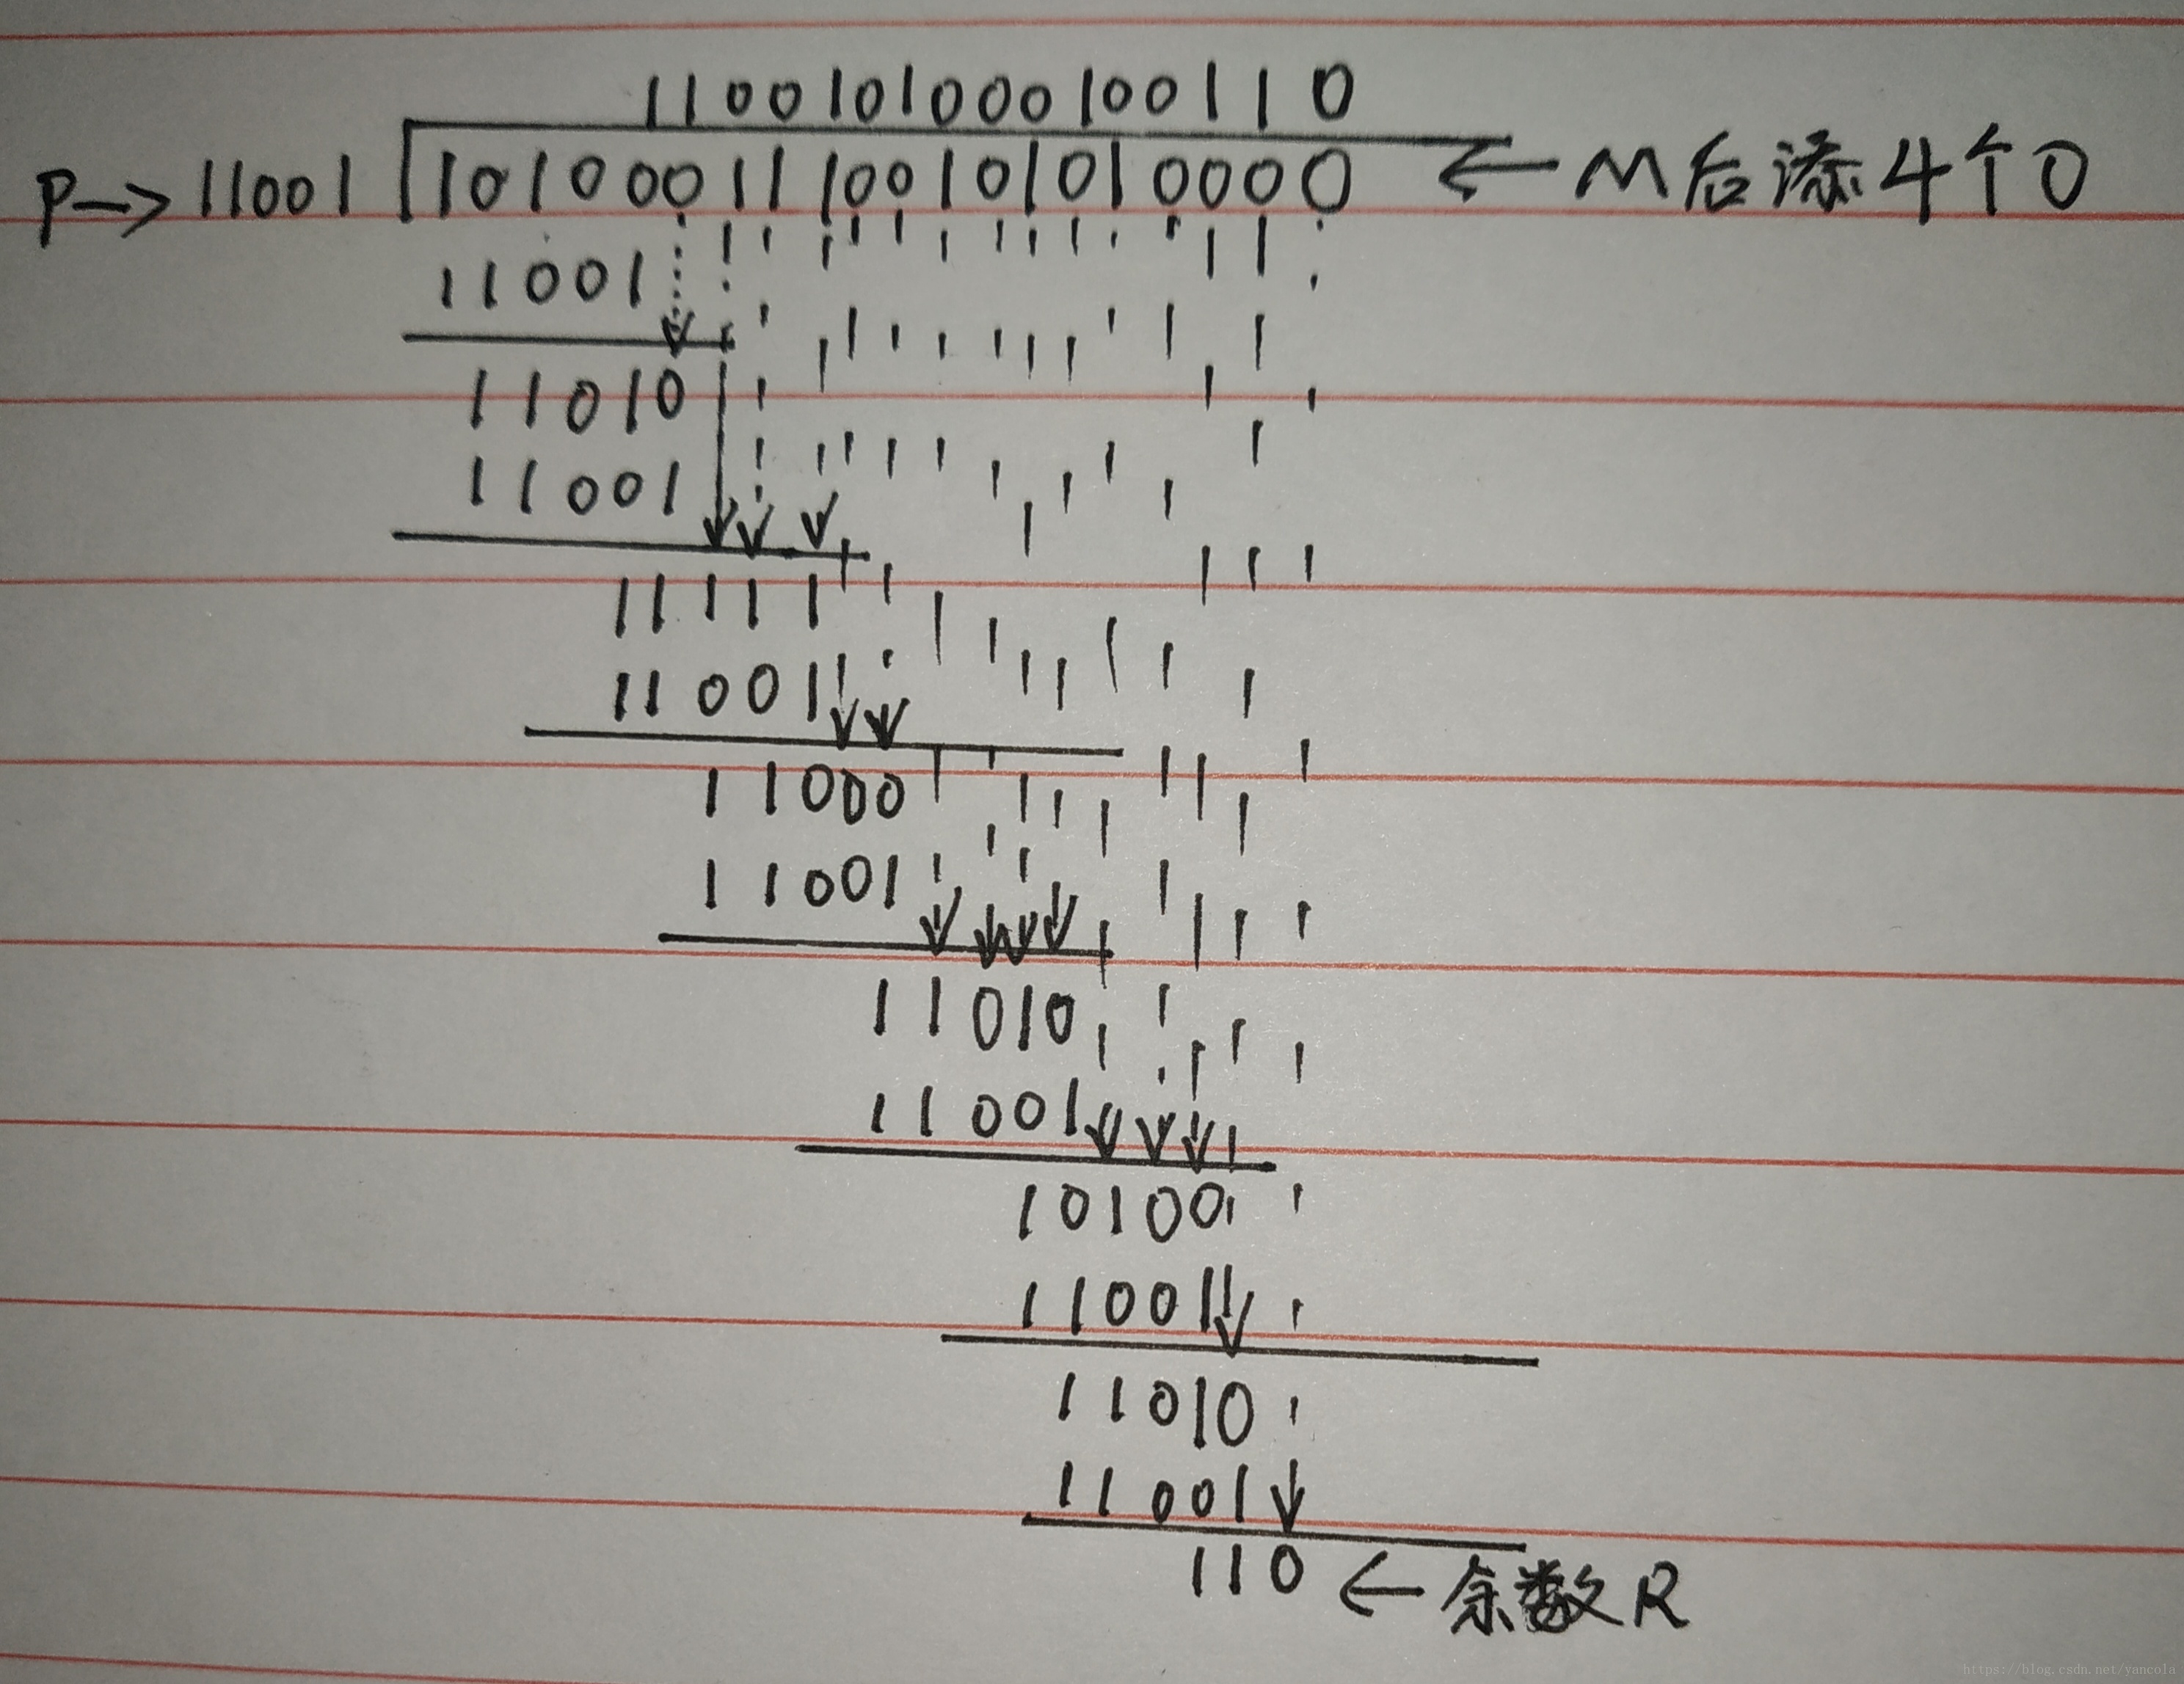 1100101000100110
P→ 11001 10100011100101010000 ← M后添4个0
11001
11010
11001
11111
11001
11000
11001
11010
11001
10100
11001
11010
11001
110 ← 余数R
https://blog.csdn.net/yancola